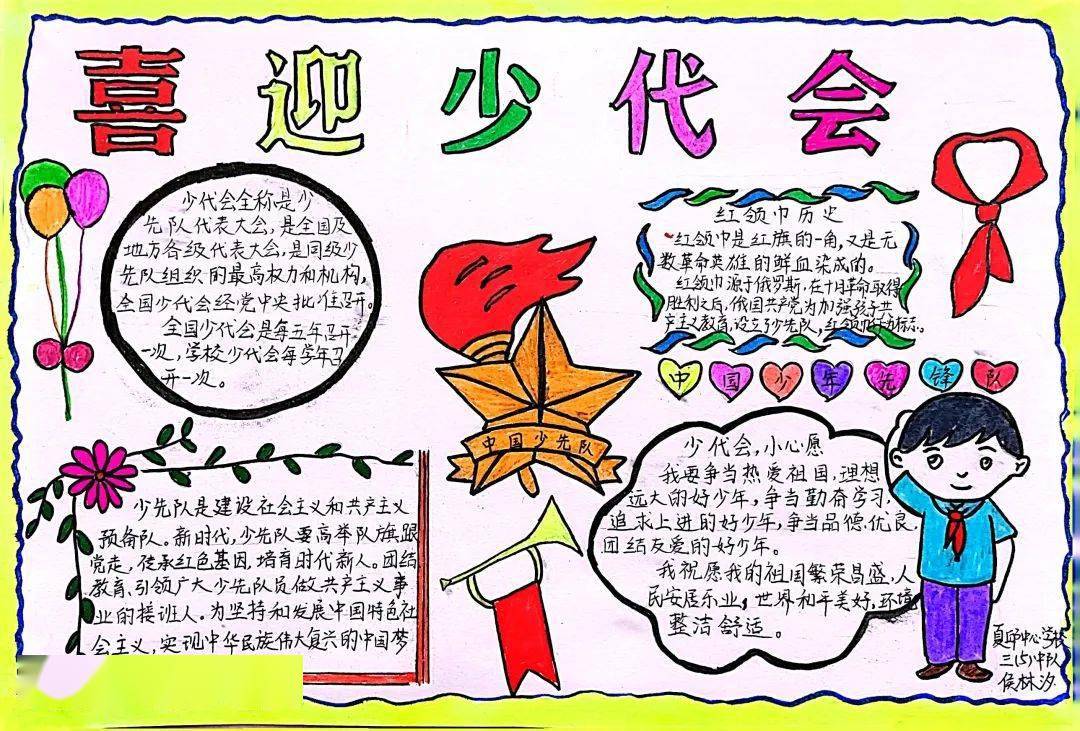 喜迎少代会
少代会全称是少
先队代表大会，是全国及
地方各级代表大会，是同级少
先队组织的最高权力和机构，
全国少代会经党中央批准召开。
全国少代会是每五年召开
一次，学校少代会每学年召
开一次。
红领巾历史
红领巾是红旗的一角，又是无
数革命英雄的鲜血染成的。
红领巾源于俄罗斯，在十月革命取得
胜利之后，俄国共产党为加强孩子共
产主义教育，设立了少先队，红领巾作为标志。
中国少年先锋队
中国少先队
少先队是建设社会主义和共产主义
预备队。新时代，少先队要高举队旗跟
党走，传承红色基因，培育时代新人。团结
教育、引领广大少先队员做共产主义事
业的接班人。为坚持和发展中国特色社
会主义，实现中华民族伟大复兴的中国梦
少代会，小心愿
我要争当热爱祖国，理想
远大的好少年，争当勤奋学习，
追求上进的好少年，争当品德优良，
团结友爱的好少年。
我祝愿我的祖国繁荣昌盛，人
民安居乐业，世界和平美好，环境
整洁舒适。
夏邱中心学校
三（5）中队
侯林汐